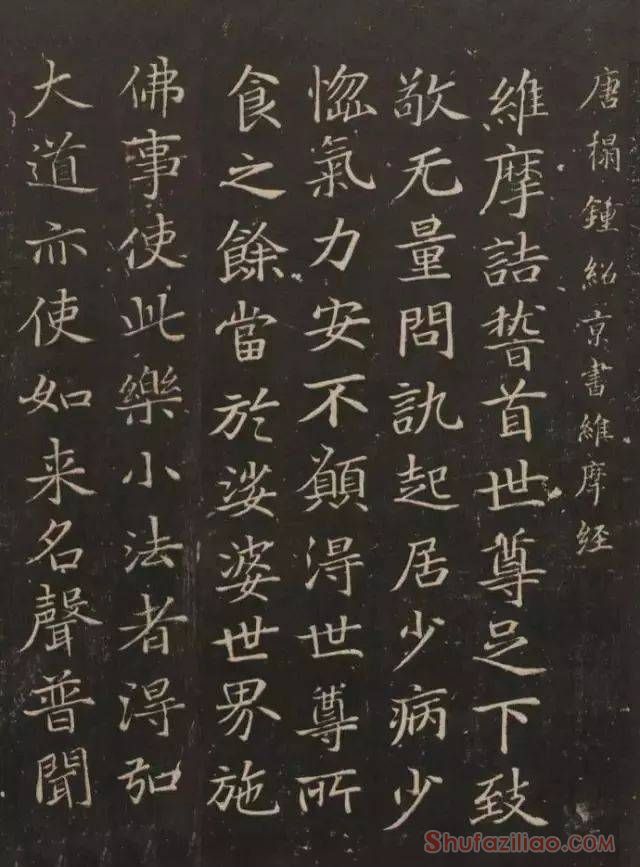 唐榻鍾紹京書維摩经
維摩詰稽首世尊足下致
敬无量問訊起居少病少
惱氣力安不願得世尊所
食之餘當於娑婆世界施
佛事使此樂小法者得弘
大道亦使如来名聲普聞
Shufaziliao.com